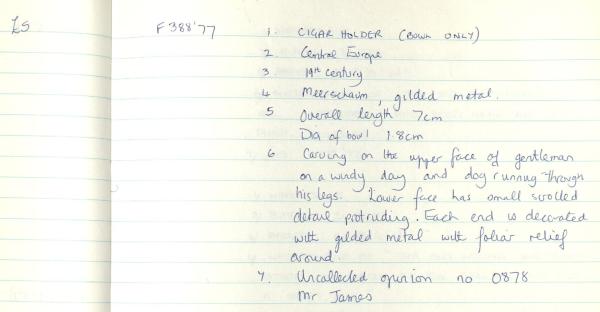 £5
F388'77
1. CIGAR HOLDER (BOWL ONLY)
2 Central Europe
3. 19th century
4 Meerschaum, gilded metal.
5 Overall length 7cm
Dia of bowl 1.8cm
6 Carving on the upper face of gentleman
on a windy day and dog running through
his legs. Lower face has small scrolled
detail protruding. Each end is decorated
with gilded metal with foliar relief
around.
7. Uncollected opinion no 0878
Mr James